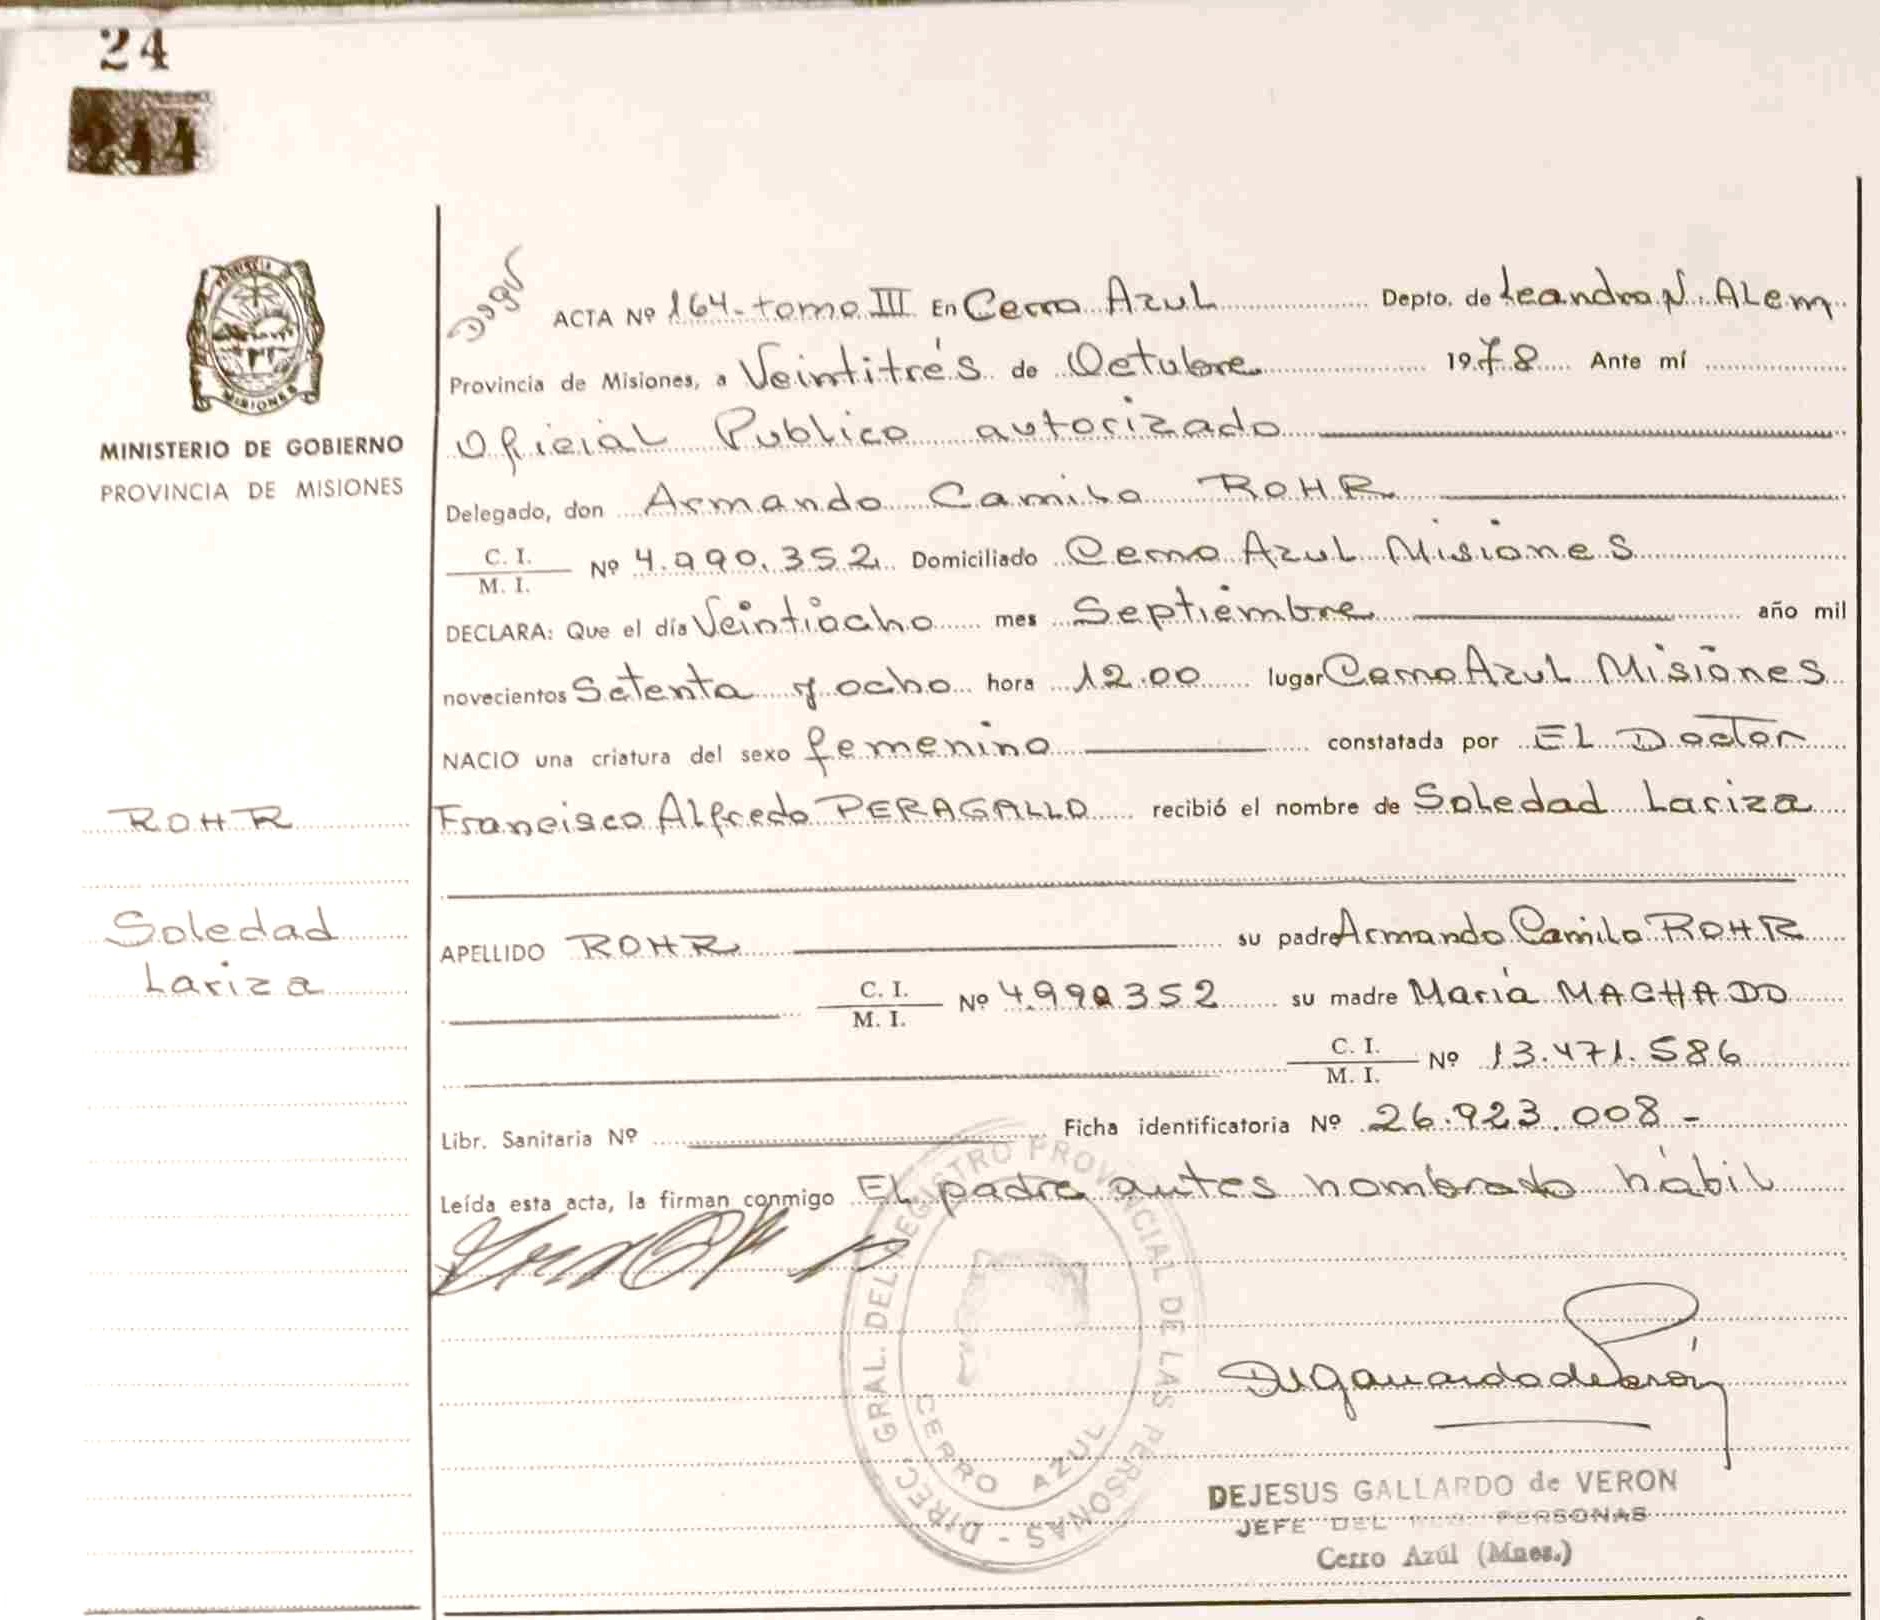 24
244
MINISTERIO DE GOBIERNO
PROVINCIA DE MISIONES
ACTA Nº 164-tomo III En Cerro Azul Depto. de Leandro N. ALem
Provincia de Misiones, a Veintitrés de Octubre 1978 Ante mí
Oficial Publico autorizado
Delegado, don Armando Camilo ROHR
C. I.
M. I. Nº 4.990.352 Domiciliado Cerro Azul Misiones
DECLARA: Que el día Veintiocho mes Septiembre año mil
novecientos Setenta y ocho hora 12.00 lugar Cerro Azul Misiones
NACIO una criatura del sexo femenino constatada por EL Doctor
Francisco Alfredo PERAGALLO recibió el nombre de Soledad Lariza
APELLIDO ROHR su padre Armando Camilo ROHR
C. I.
M. I. Nº 4.990352 su madre María MACHADO
C. I.
M. I. Nº 13.471.586
Libr. Sanitaria Nº Ficha identificatoria Nº 26.923.008-
Leída esta acta, la firman conmigo El padre antes nombrado hábil
ROHR
Soledad
Lariza
DIREC. GRAL. DEL REGISTRO PROVINCIAL DE LAS PERSONAS -
CERRO AZUL
DEJESUS GALLARDO de VERON
JEFE DEL PERSONAS
Cerro Azúl (Mnes.)